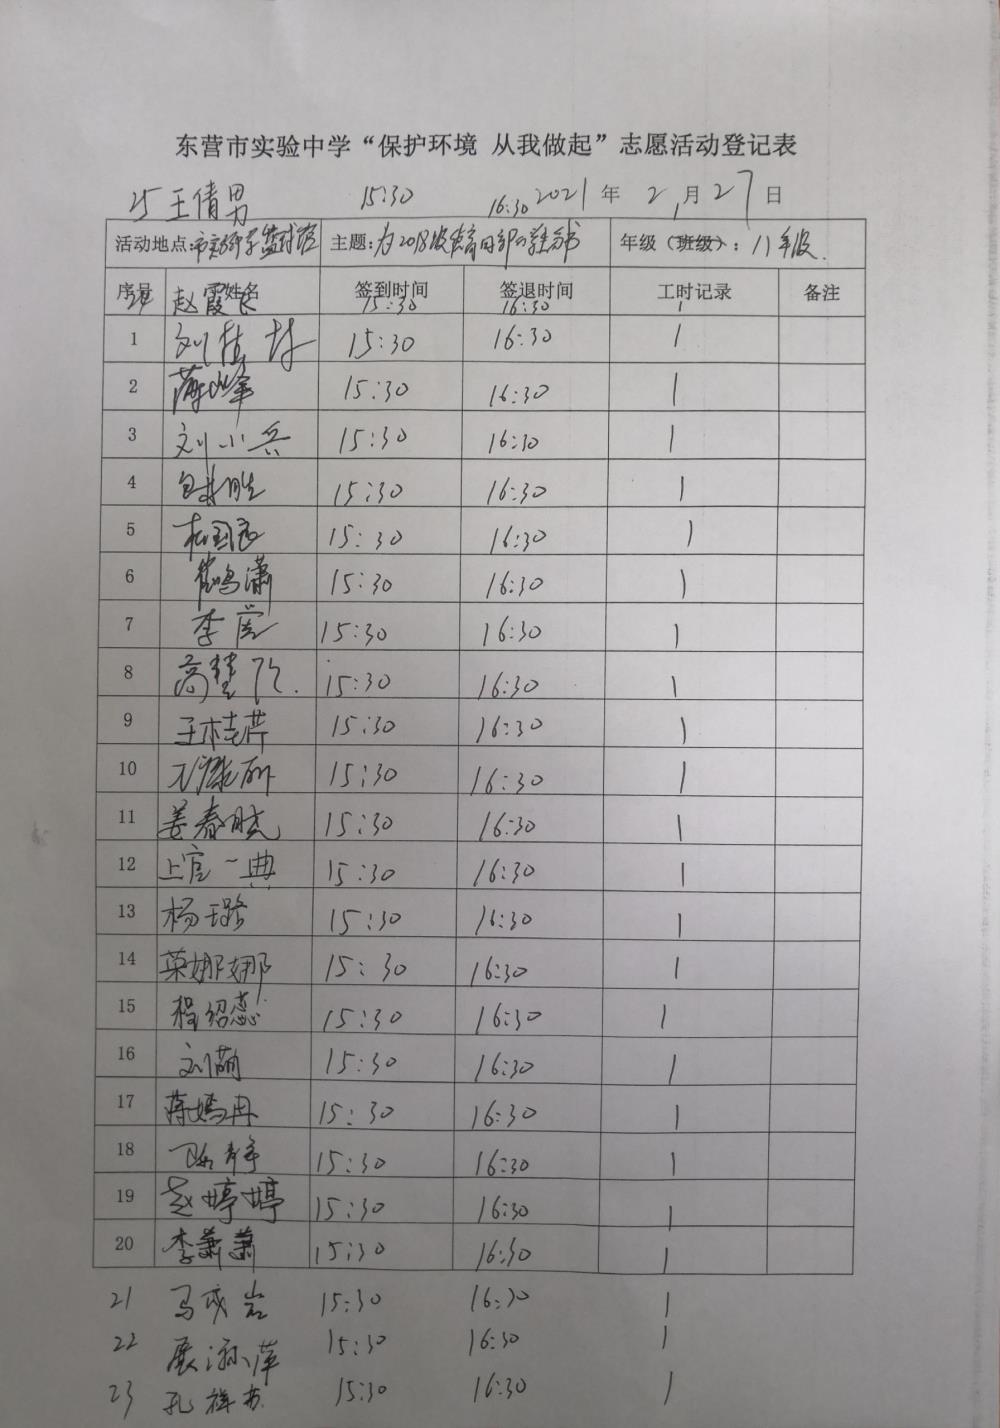 东营市实验中学“保护环境 从我做起”志愿活动登记表
25 王倩男 15:30 16:30 2021 年 2 月 27 日
活动地点: 主题: 年级（班级）: 11年级.
序号 姓名 签到时间 签退时间 工时记录 备注
24 赵霞 15:30 16:30 1
1 刘 15:30 16:30 1
2 15:30 16:30 1
3 刘小兵 15:30 16:30 1
4 15:30 16:30 1
5 15:30 16:30 1
6 15:30 16:30 1
7 李 15:30 16:30 1
8 高 15:30 16:30 1
9 王桂芹 15:30 16:30 1
10 15:30 16:30 1
11 姜春晓 15:30 16:30 1
12 上官一典 15:30 16:30 1
13 杨璐 15:30 16:30 1
14 荣娜娜 15:30 16:30 1
15 程绍蕊 15:30 16:30 1
16 刘萌 15:30 16:30 1
17 蒋嫣冉 15:30 16:30 1
18 静 15:30 16:30 1
19 赵婷婷 15:30 16:30 1
20 李萧萧 15:30 16:30 1
21 马成岩 15:30 16:30 1
22 展 萍 15:30 16:30 1
23 孔祥 15:30 16:30 1